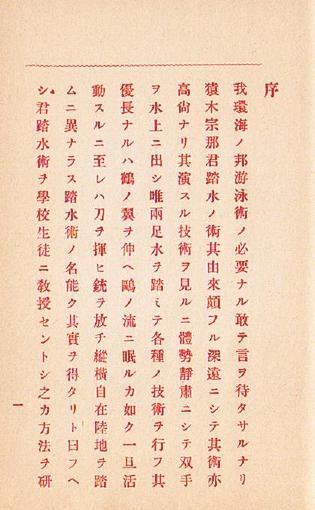 序
我環海ノ邦游泳術ノ必要ナル敢テ言ヲ待タサルナリ
猿木宗那君踏水ノ術其由來頗フル深遠ニシテ其術亦
高尙ナリ其演スル技術ヲ見ルニ體勢靜肅ニシテ双手
ヲ水上ニ出シ唯兩足水ヲ踏ミテ各種ノ技術ヲ行フ其
優長ナルハ鶴ノ翼ヲ伸ヘ鷗ノ流ニ眠ルカ如ク一旦活
動スルニ至レハ刀ヲ揮ヒ銃ヲ放チ縱橫自在陸地ヲ踏
ムニ異ナラス踏水術ノ名能ク其實ヲ得タリト曰フヘ
シ君踏水術ヲ學校生徒ニ敎授セントシ之カ方法ヲ硏
一